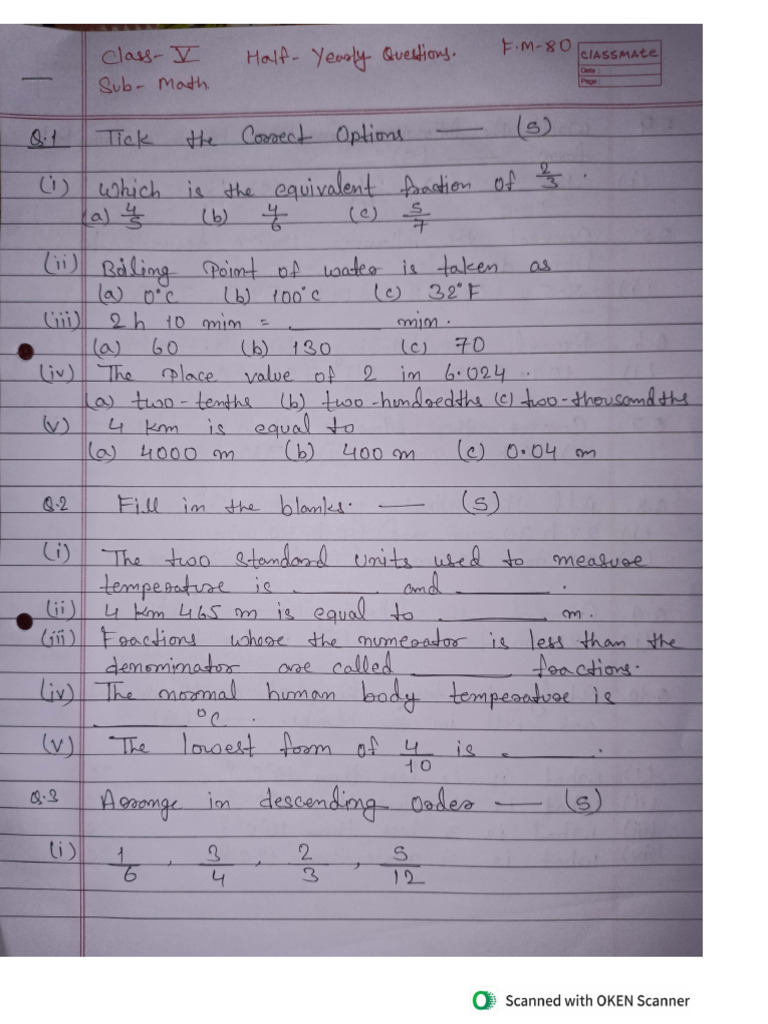 Class- V Half- Yearly Questions. F.M-80 CLASSMATE
Date :
Page :
Sub- Math.
Q.1 Tick the Correct Options — (5)
(i) which is the equivalent fraction of 2/3.
(a) 4/5 (b) 4/6 (c) 5/7
(ii) Boiling Point of water is taken as
(a) 0°c (b) 100°c (c) 32°F
(iii) 2 h 10 min = ________ min.
(a) 60 (b) 130 (c) 70
(iv) The Place value of 2 in 6.024.
(a) two-tenths (b) two-hundredths (c) two-thousandths
(v) 4 Km is equal to
(a) 4000 m (b) 400 m (c) 0.04 m
Q.2 Fill in the blanks. — (5)
(i) The two standard units used to measure
temperature is ________ and ________.
(ii) 4 Km 465 m is equal to ________ m.
(iii) Fractions whose the numerator is less than the
denominator are called ________ fractions.
(iv) The normal human body temperature is
________ °C.
(v) The lowest form of 4/10 is ________.
Q.3 Arrange in descending Order — (5)
(i) 1/6, 3/4, 2/3, 5/12
Scanned with OKEN Scanner